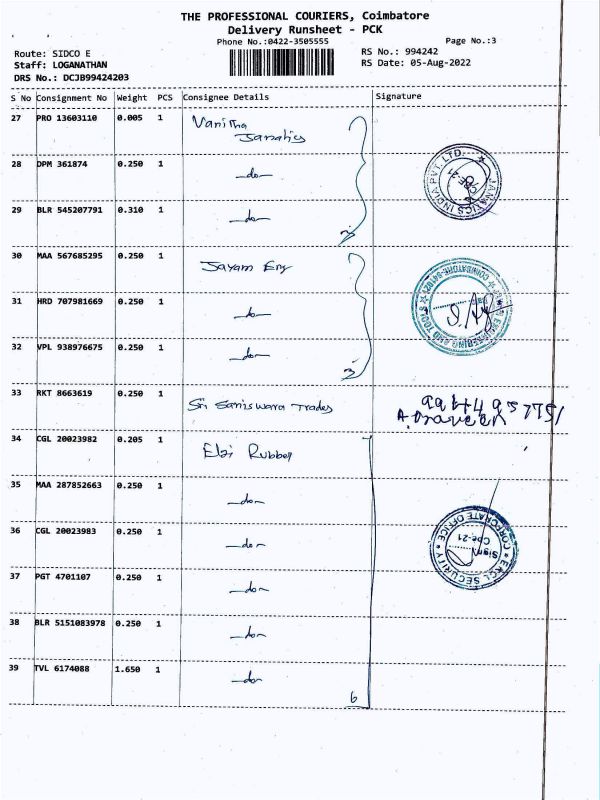 THE PROFESSIONAL COURIERS, Coimbatore
Delivery Runsheet - PCK
Phone No.:0422-3505555
Page No.:3
Route: SIDCO E
RS No.: 994242
Staff: LOGANATHAN
RS Date: 05-Aug-2022
DRS No.: DCJB99424203
S No Consignment No Weight PCS Consignee Details Signature
27 PRO 13603110 0.005 1 Vanitha
Janatics
28 DPM 361874 0.250 1 -do-
JANATICS INDIA PVT. LTD.
29 BLR 545207791 0.310 1 -do-
3
30 MAA 567685295 0.250 1 Jayam Eng
31 HRD 707981669 0.250 1 -do-
ENGINEERING AND TOOLS
32 VPL 938976675 0.250 1 -do-
3
33 RKT 8663619 0.250 1 Sri Saniswara Trades
A. Praveen
34 CGL 20023982 0.205 1 Elgi Rubber
35 MAA 287852663 0.250 1 -do-
36 CGL 20023983 0.250 1 -do-
SECURITY CORPORATE OFFICE
Sign
Cbe-21
37 PGT 4701107 0.250 1 -do-
38 BLR 5151083978 0.250 1 -do-
39 TVL 6174088 1.650 1 -do-
6